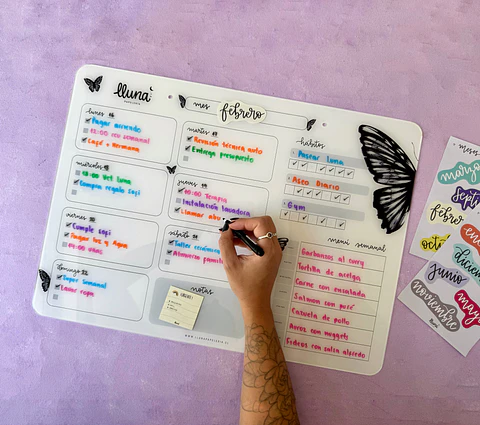 lluna
mes
febrero
lunes
Pagar arriendo
15:00 reu semanal
Café + Hermana
martes
Revisión técnica auto
Entrega presupuesto
miércoles
18:00 Vet Luna
Comprar regalo Sofi
jueves
10:00 Terapia
Instalación lavadora
Llamar
viernes
Cumple Sofi
Pagar luz y Agua
sábado
Taller cerámica
Almuerzo familia
domingo
Super Semanal
Lavar ropa
notas
hábitos
Pasear Luna
Aseo Diario
Gym
menú semanal
Garbanzos al curry
Tortilla de acelga
Carne con ensalada
Salmón con puré
Cazuela de pollo
Arroz con nuggets
Fideos con salsa alfredo
meses
mayo
sept
febre
oct
diciem
junio
noviembre